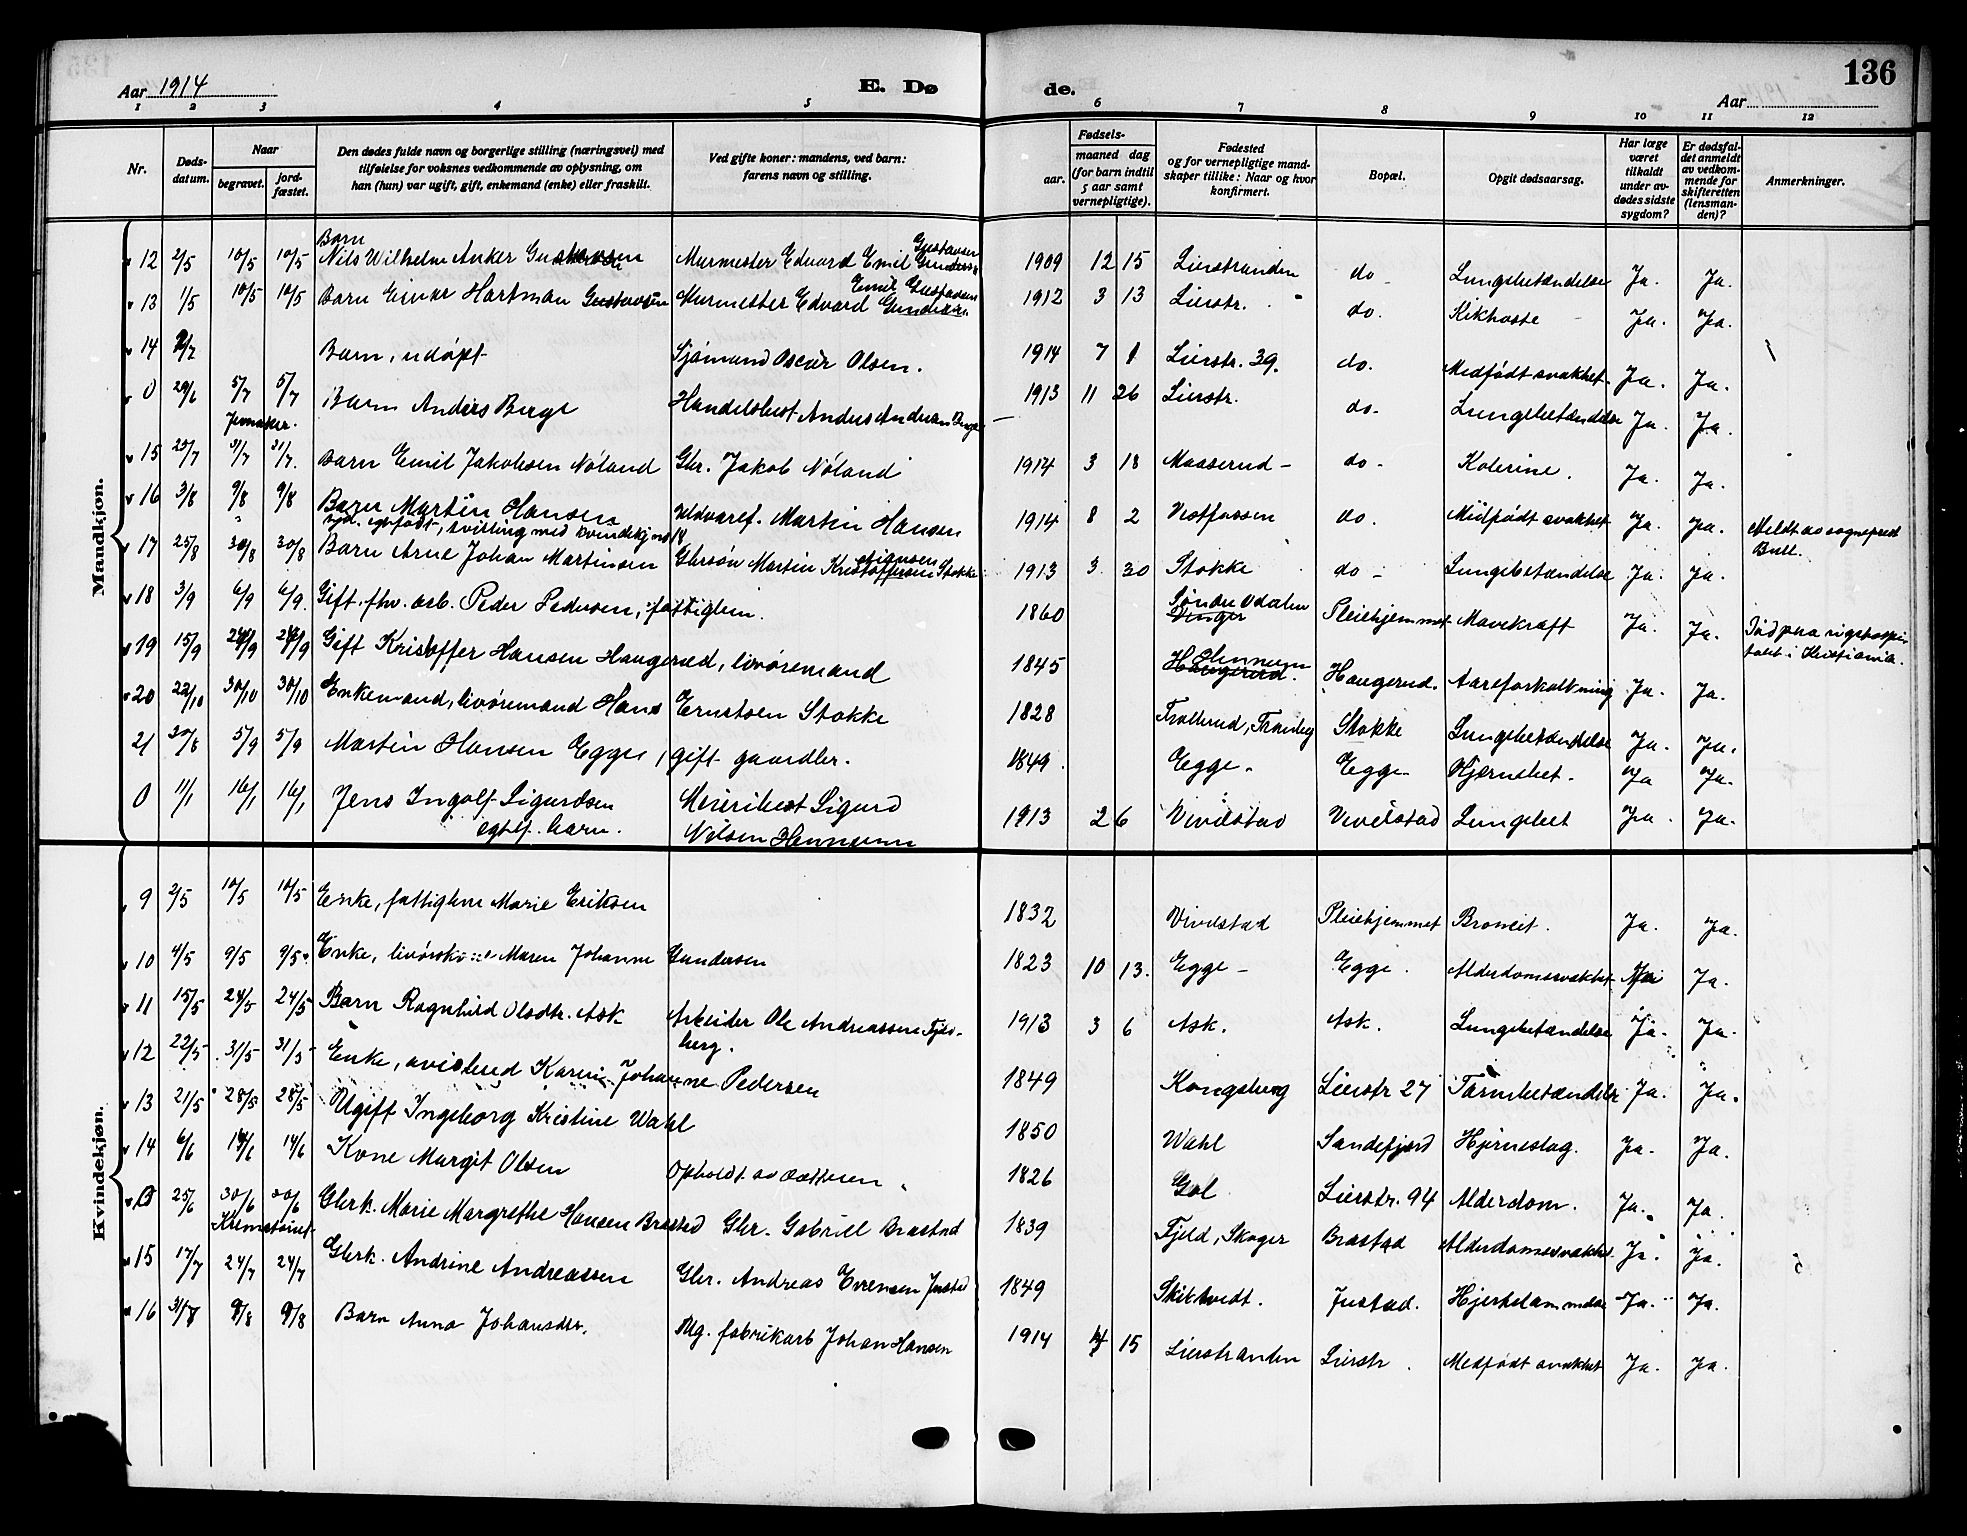 136
Aar 1914
E. Dø
de.
Aar
1 2 3 4 5 6 7 8 9 10 11 12
Nr.
Døds-
datum.
Naar
begravet.
jord-
fæstet.
Den dødes fulde navn og borgerlige stilling (næringsvei) med
tilføielse for voksnes vedkommende av oplysning, om
han (hun) var ugift, gift, enkemand (enke) eller fraskilt.
Ved gifte koner: mandens, ved barn:
farens navn og stilling.
Fødsels-
aar.
maaned dag
(for barn indtil
5 aar samt
vernepligtige).
Fødested
og for vernepligtige mand-
skaper tillike: Naar og hvor
konfirmert.
Bopæl.
Opgit dødsaarsag.
Har læge
været
tilkaldt
under av-
dødes sidste
sygdom?
Er dødsfal-
det anmeldt
av vedkom-
mende for
skifteretten
(lensman-
den)?
Anmerkninger.
Mandkjøn.
12 2/5 10/5 10/5 Barn Nils Wilhelm Anker Gustavsen Murmester Edvard Emil Gustavsen Gunders 1909 12 15 Lierstranden do Lungebetændelse Ja. Ja.
13 1/5 10/5 10/5 Barn Einar Hartman Gustavsen Murmester Edvard Emil Gustavsen Gundersen 1912 3 13 Lierstr. do. Kikhoste Ja. Ja.
14 2/7 Barn, udøpt Sjømand Oscar Olsen. 1914 7 1 Lierstr. 39. do. Medfødt svakhet Ja. Ja.
0 29/6 5/7 5/7 Barn Anders Berge Handelsbest Anders Andreas Berge 1913 11 26 Lierstr. do. Lungebetændelse Ja. Ja.
15 25/7 31/7 31/7. Barn Emil Jakobsen Nøland Gbr. Jakob Nøland 1914 3 18 Maaserud do. Kolerine. Ja. Ja.
16 3/8 9/8 9/8 Barn Martin Hansen Uldvaref. Martin Hansen 1914 8 2 Vestfossen do. Midfødt svakhet Ja. Ja. Meldt av sogneprest
egtefødt, tvilling med kvindekj no 18
Bull.
17 25/8 30/8 30/8 Barn Arne Johan Martinsen Gbrsøn Martin Kristiansen Stokke 1913 3 30 Stokke do Lungebetændelse Ja. Ja.
18 3/9 6/9 6/9. Gift. fhv. arb. Peder Pedersen, fattiglem. 1860 Søndre Odalen Vinger Pleiehjemmet Mavekræft Ja. Ja. Død paa rigshospi
talet i Kristiania.
19 15/9 24/9 24/9 Gift Kristoffer Hansen Haugerud, livøremand 1845 Hennum Haugerud. Haugerud. Aareforkalkning Ja. Ja.
20 22/10 30/10 30/10 Enkemand, livøremand Hans Ernstsen Stokke 1828 Trollerud, Tranby Stokke Lungebetændelse Ja. Ja.
21 30/8 5/9 5/9 Martin Hansen Egge, gift gaardbr. 1849. Egge. Egge Hjernebet. Ja Ja.
0 11/1 16/1 16/1 Jens Ingolf Sigurdsen Meieribest Sigurd 1913 2 6 Vivelstad Vivelstad Lungebet Ja. Ja.
egtef. barn. Nilsen Hennum
Kvindekjøn.
9 2/5 10/5 10/5 Enke, fattiglem Marie Eriksen 1832 Vivelstad Pleiehjemmet Broncit. Ja. Ja.
10 4/5 9/5 9/5 Enke, livørskone Maren Johanne Gundersen 1823 10 13. Egge Egge. Alderdomssvakhet Nei Ja.
11 15/5 24/5 24/5 Barn Ragnhild Olsdtr. Ask Arbeider Ole Andreassen Fjeld-
berg. 1913 3 6 Ask. Ask. Lungebetændelse Ja. Ja.
12 22/5 31/5 31/5 Enke, avisbud Karen Johanne Pedersen 1849 Kongsberg Lierstr 27 Tarmbetændelse Ja. Ja.
13 21/5 28/5 28/5 Ugift Ingeborg Kristine Wahl 1850 Wahl Sandefjord Hjerneslag. Ja. Ja.
14 6/6 14/6 14/6 Kone Margit Olsen Opholdt av datteren. 1826 Gol Lierstr. 94 Alderdom. Ja. Ja.
0 25/6 30/6 30/6 Gbrk. Marie Margrethe Hansen Brastad Gbr. Gabriel Brastad 1839 Fjeld, Skoger Brastad Alderdomssvakhet Ja. Ja.
Krematoriet.
15 17/7 24/7 24/7 Gbrk. Andrine Andreassen Gbr. Andreas Evensen Justad 1849 Skiktvedt. Justad. Hjertelammelse Ja. Ja.
16 31/7 9/8 9/8 Barn Anna Johansdtr. Ug. fabrikarb Johan Hansen 1914 4 15 Lierstranden Lierstr. Medfødt svakhet Ja. Ja.